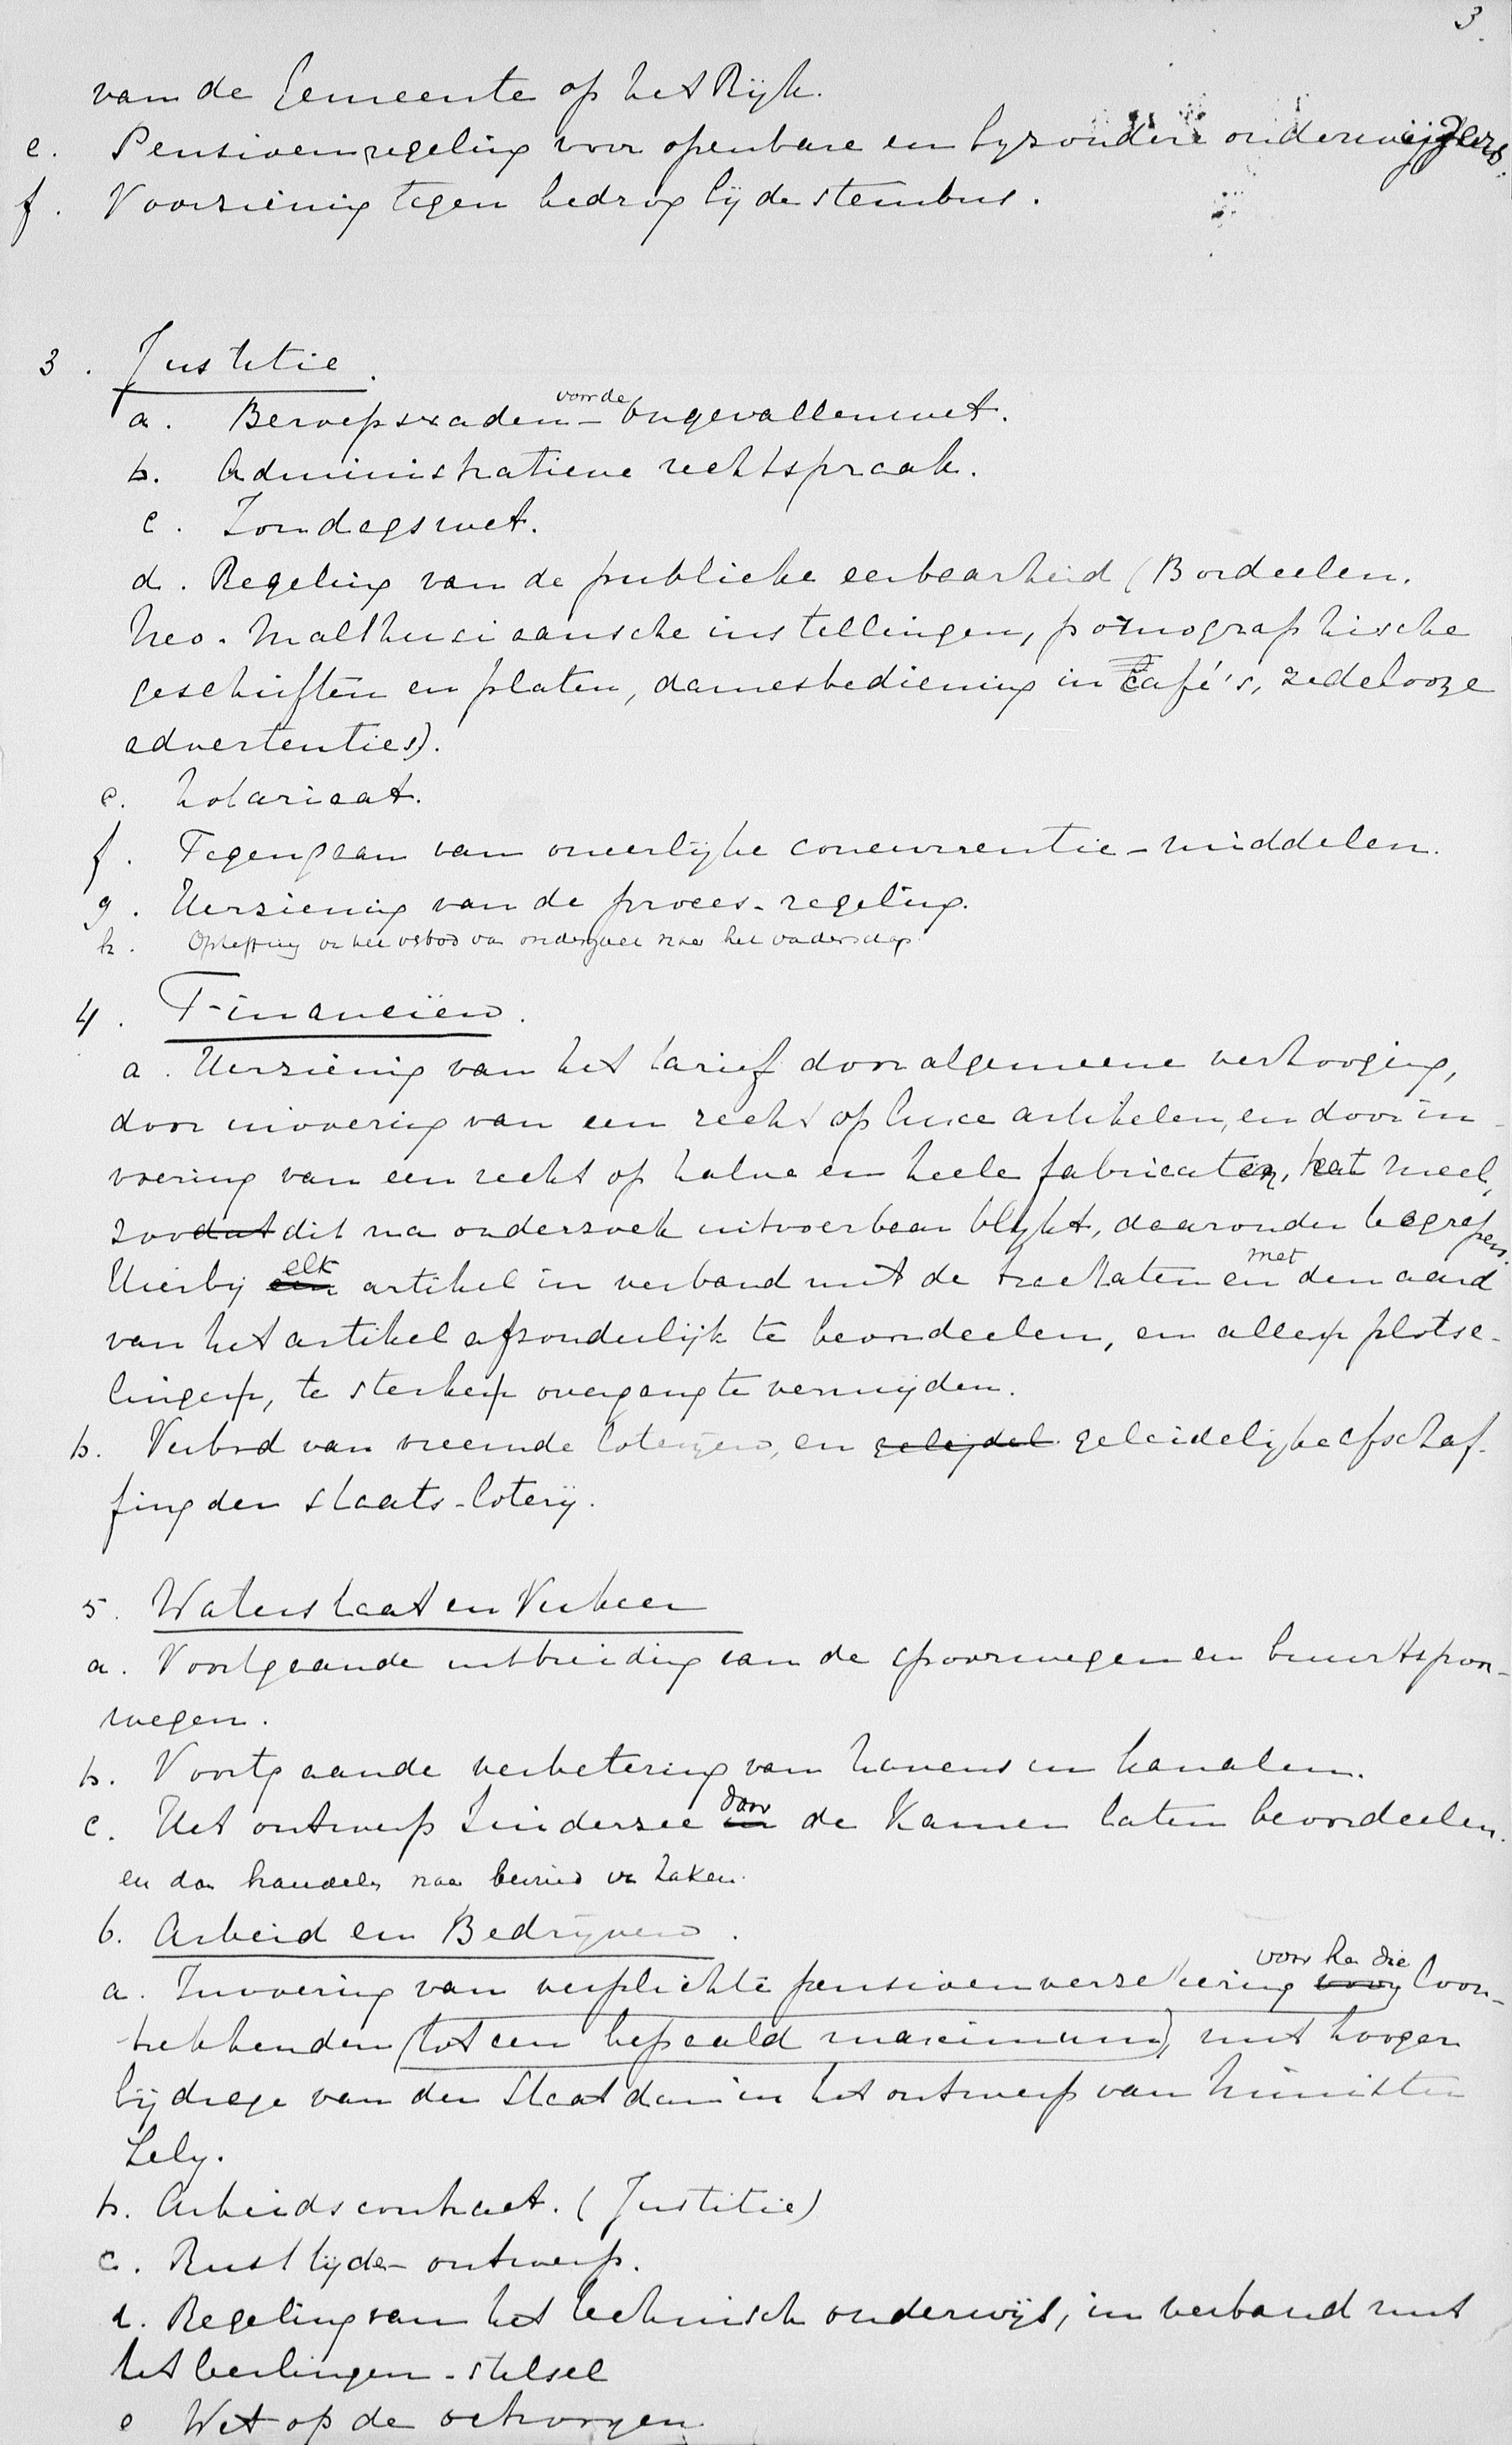 3.
van de Gemeente op het Rijk.
e. Pensioenregeling voor openbare en byzondere onderwijzers.
f. Voorziening tegen bedrog bij de stembus.
3. Justitie.
a. Beroepsraden voor de Ongevallenwet.
b. Administratieve rechtspraak.
c. Zondagswet.
d. Regeling van de publieke eerbaarheid (Bordeelen.
Neo-Malthusiaansche instellingen, pornographische
geschriften en platen, damesbediening in café's, zedelooze
advertenties).
e. Notariaat.
f. Tegengaan van oneerlijke concurrentie-middelen.
g. Herziening van de proces-regeling.
h. Opheffing van het verbod van onderzoek naar het vaderschap
4. Financiën.
a. Herziening van het tarief door algemeene verhooging,
door invoering van een recht op luxe artikelen, en door in-
voering van een recht op halve en heele fabricaten, het meel,
zoo dat dit na onderzoek uitvoerbaar blykt, daaronder begrepen.
Hierby een elk artikel in verband met de tractaten en met den aard
van het artikel afzonderlijk te beoordeelen, en allen plotse-
lingen, te sterken overgang te vermijden.
b. Verbod van vreemde loterijen, en gelijdel geleidelijke afschaf-
fing der staats-loterij.
5. Waterstaat en Verkeer
a. Voortgaande uitbreiding van de spoorwegen en buurtspoor-
wegen.
b. Voortgaande verbetering van havens en kanalen.
c. Het ontwerp Zuiderzee in door de Kamer laten beoordeelen.
en dan handelen naar bevind van zaken.
6. Arbeid en Bedrijven.
a. Invoering van verplichte pensioenverzekering voor voor hen die loon-
trekkenden (tot een bepaald maximum), met hooger
bijdrage van den Staat dan in het ontwerp van Minister
Lely.
b. Arbeidscontract. (Justitie)
c. Rusttijden-ontwerp.
d. Regeling van het technisch onderwijs, in verband met
het leerlingen-stelsel
e Wet op de octrooyen